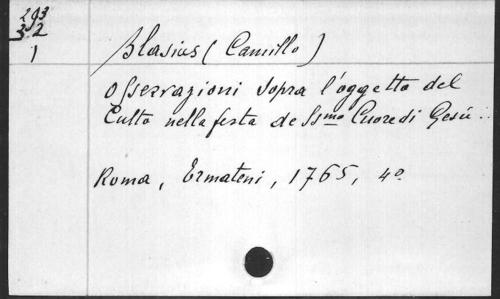 293
3.2
1
Blasius (Camillo)
Osservazioni sopra l'oggetto del
Culto nella festa de Ssmo Cuore di Gesú
Roma, Ermateni, 1765, 4º